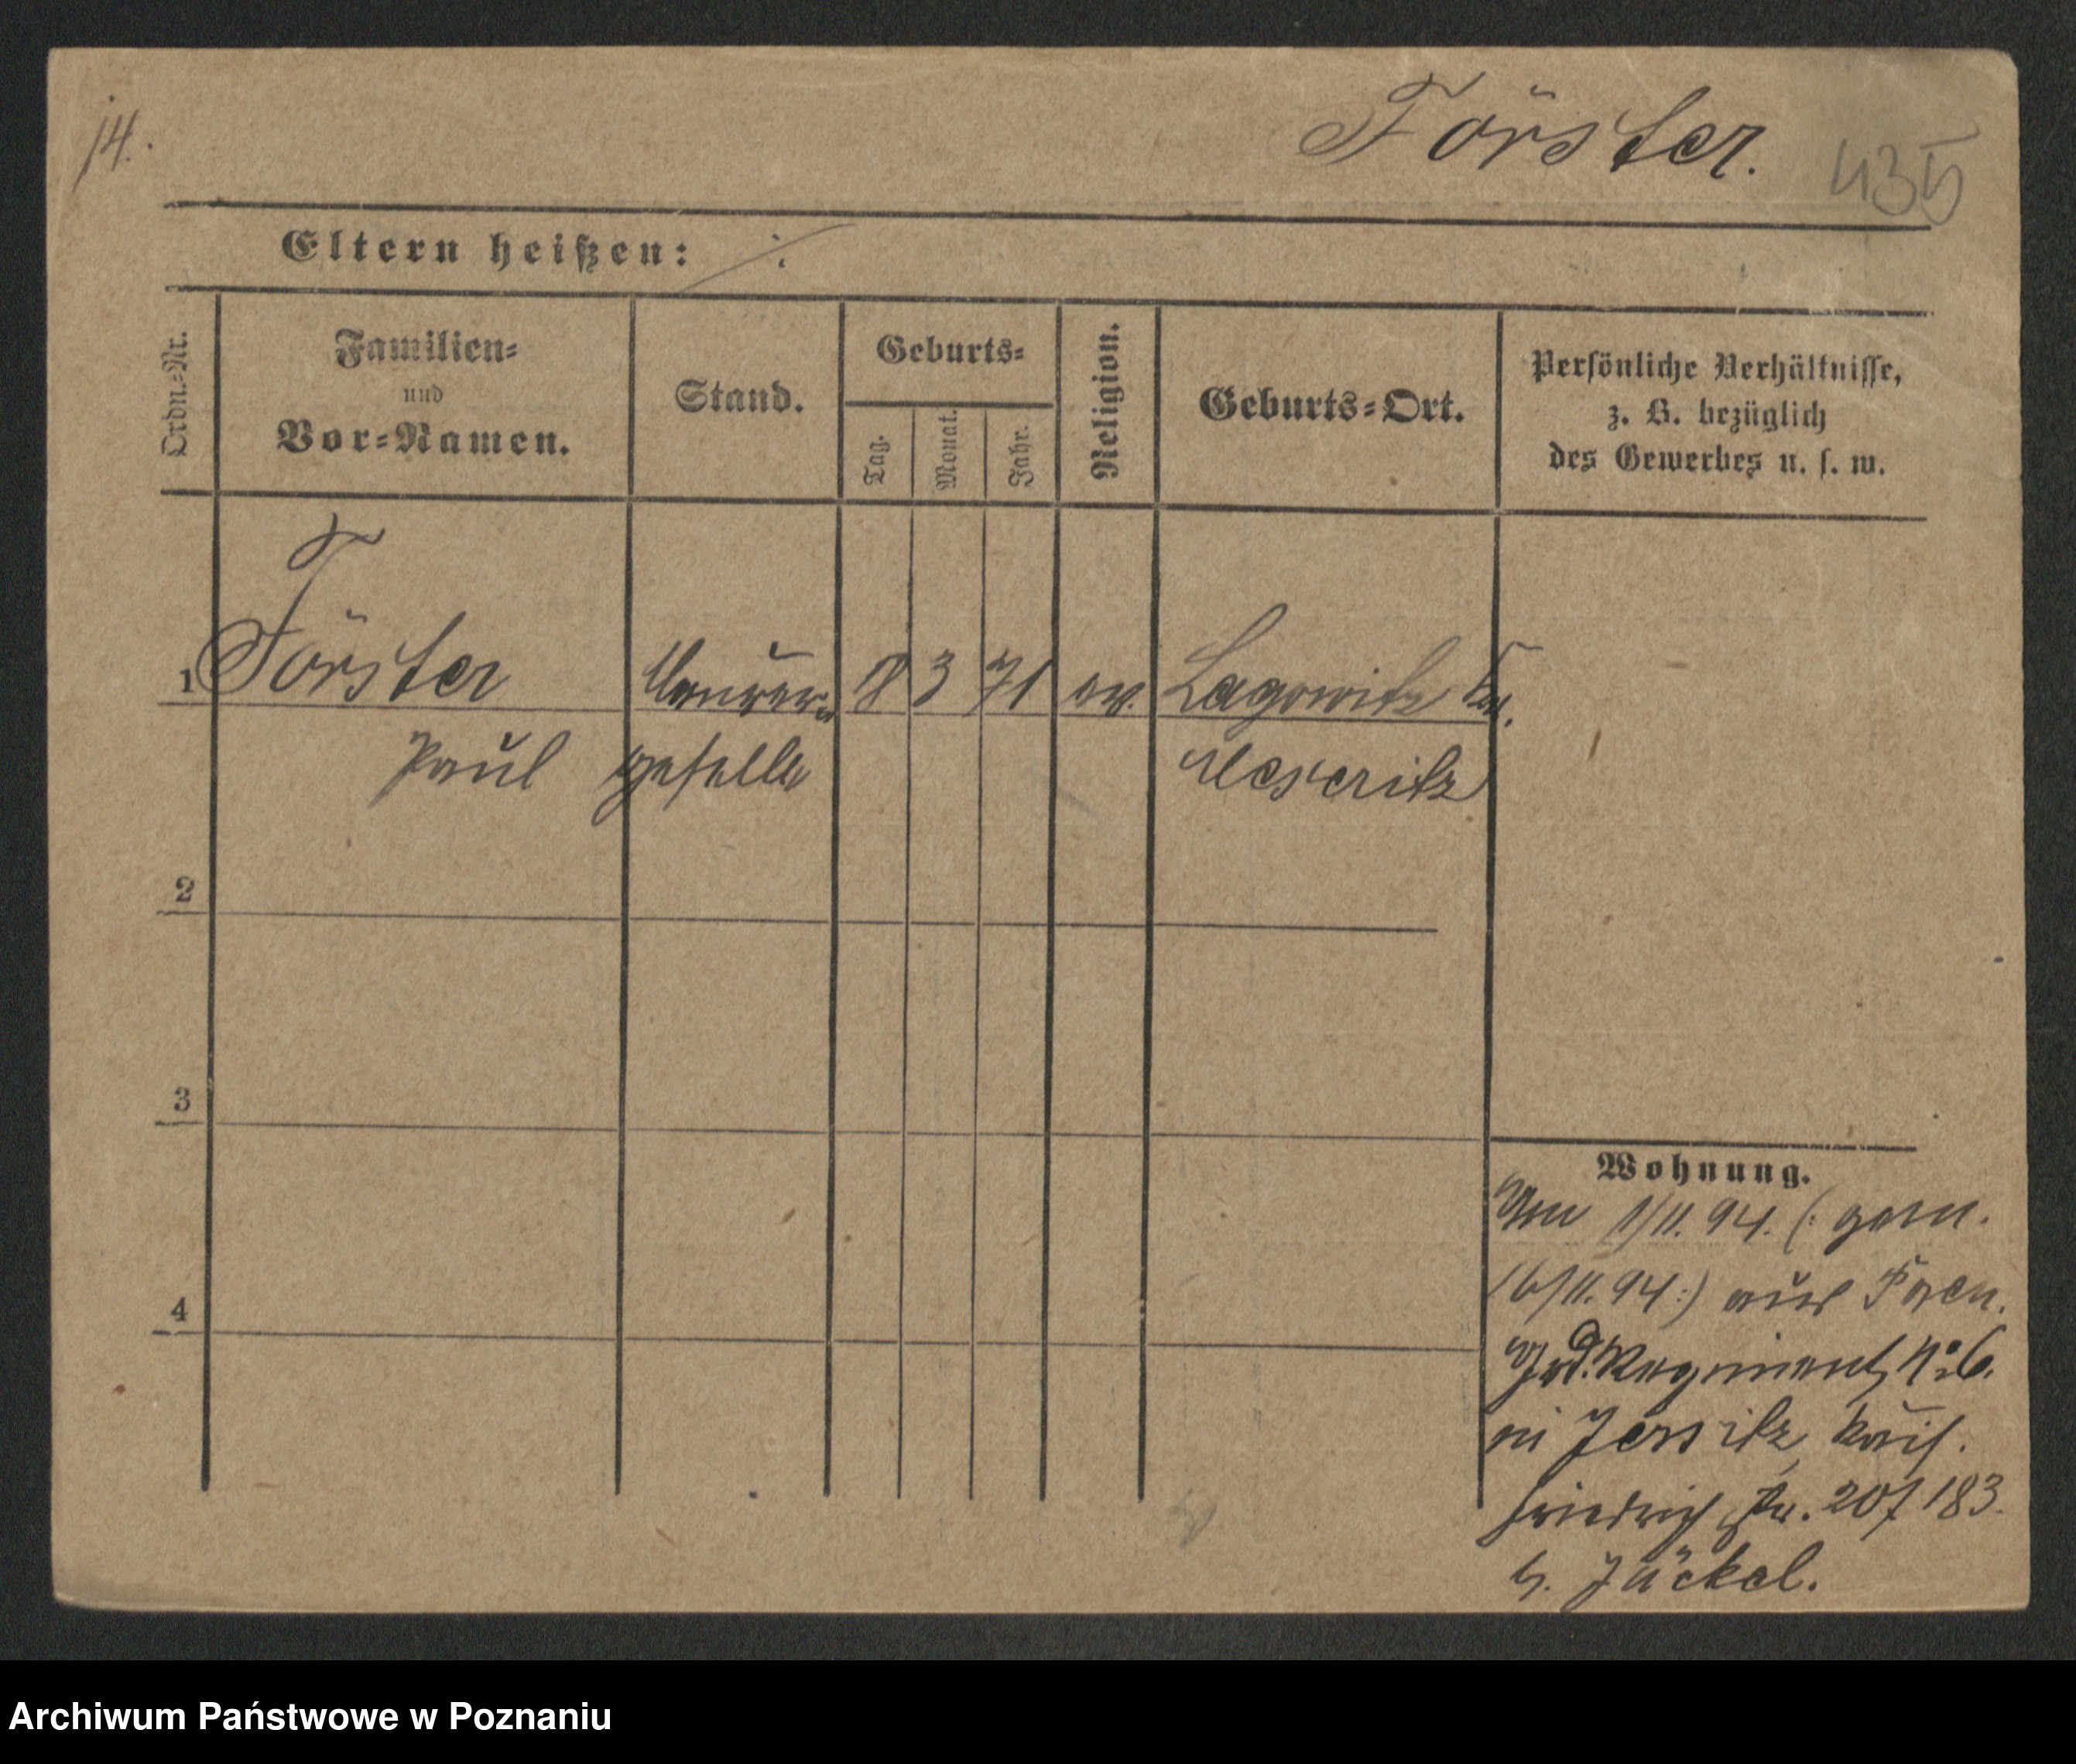 14.
Förster.
435
Eltern heißen: ⁒
Ordn.-Nr.
Familien-
und
Vor-Namen.
Stand.
Geburts-
Tag.
Monat.
Jahr.
Religion.
Geburts-Ort.
Persönliche Verhältnisse,
z. B. bezüglich
des Gewerbes u. s. w.
1 Förster Maurer- 18 3 71 ev. Lagowitz Kr.
Paul geselle Meseritz
2
3
4
Wohnung.
Am 1/11. 94. (: gem.
16/11. 94 :) aus
Regiment, No 6.
in Jersitz, Kais.
Friedrich Str. 207/183.
b. Jäckel.
Archiwum Państwowe w Poznaniu